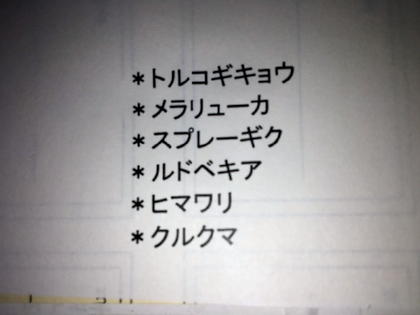 *トルコギキョウ
*メラリューカ
*スプレーギク
*ルドベキア
*ヒマワリ
*クルクマ